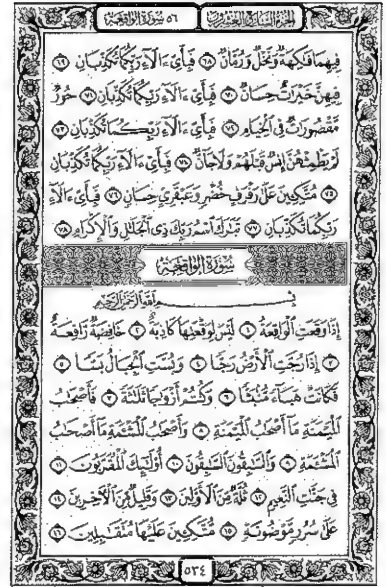 الجزء السابع والعشرون ٥٦ سورة الواقعة
فِيهِمَا فَاكِهَةٌ وَنَخْلٌ وَرُمَّانٌ ٦٨ فَبِأَيِّ ءَالَآءِ رَبِّكُمَا تُكَذِّبَانِ ٦٩
فِيهِنَّ خَيْرَاتٌ حِسَانٌ ٧٠ فَبِأَيِّ ءَالَآءِ رَبِّكُمَا تُكَذِّبَانِ ٧١ حُورٌ
مَّقْصُورَاتٌ فِي الْخِيَامِ ٧٢ فَبِأَيِّ ءَالَآءِ رَبِّكُمَا تُكَذِّبَانِ ٧٣
لَمْ يَطْمِثْهُنَّ إِنسٌ قَبْلَهُمْ وَلَا جَانٌّ ٧٤ فَبِأَيِّ ءَالَآءِ رَبِّكُمَا تُكَذِّبَانِ
٧٥ مُتَّكِئِينَ عَلَىٰ رَفْرَفٍ خُضْرٍ وَعَبْقَرِيٍّ حِسَانٍ ٧٦ فَبِأَيِّ ءَالَآءِ
رَبِّكُمَا تُكَذِّبَانِ ٧٧ تَبَارَكَ اسْمُ رَبِّكَ ذِي الْجَلَالِ وَالْإِكْرَامِ ٧٨
سورة الواقعة
بِسْمِ اللَّهِ الرَّحْمَٰنِ الرَّحِيمِ
إِذَا وَقَعَتِ الْوَاقِعَةُ ١ لَيْسَ لِوَقْعَتِهَا كَاذِبَةٌ ٢ خَافِضَةٌ رَّافِعَةٌ
٣ إِذَا رُجَّتِ الْأَرْضُ رَجًّا ٤ وَبُسَّتِ الْجِبَالُ بَسًّا ٥
فَكَانَتْ هَبَاءً مُّنبَثًّا ٦ وَكُنتُمْ أَزْوَاجًا ثَلَاثَةً ٧ فَأَصْحَابُ
الْمَيْمَنَةِ مَا أَصْحَابُ الْمَيْمَنَةِ ٨ وَأَصْحَابُ الْمَشْئَمَةِ مَا أَصْحَابُ
الْمَشْئَمَةِ ٩ وَالسَّابِقُونَ السَّابِقُونَ ١٠ أُولَٰئِكَ الْمُقَرَّبُونَ ١١
فِي جَنَّاتِ النَّعِيمِ ١٢ ثُلَّةٌ مِّنَ الْأَوَّلِينَ ١٣ وَقَلِيلٌ مِّنَ الْآخِرِينَ ١٤
عَلَىٰ سُرُرٍ مَّوْضُونَةٍ ١٥ مُّتَّكِئِينَ عَلَيْهَا مُتَقَابِلِينَ ١٦
٥٣٤